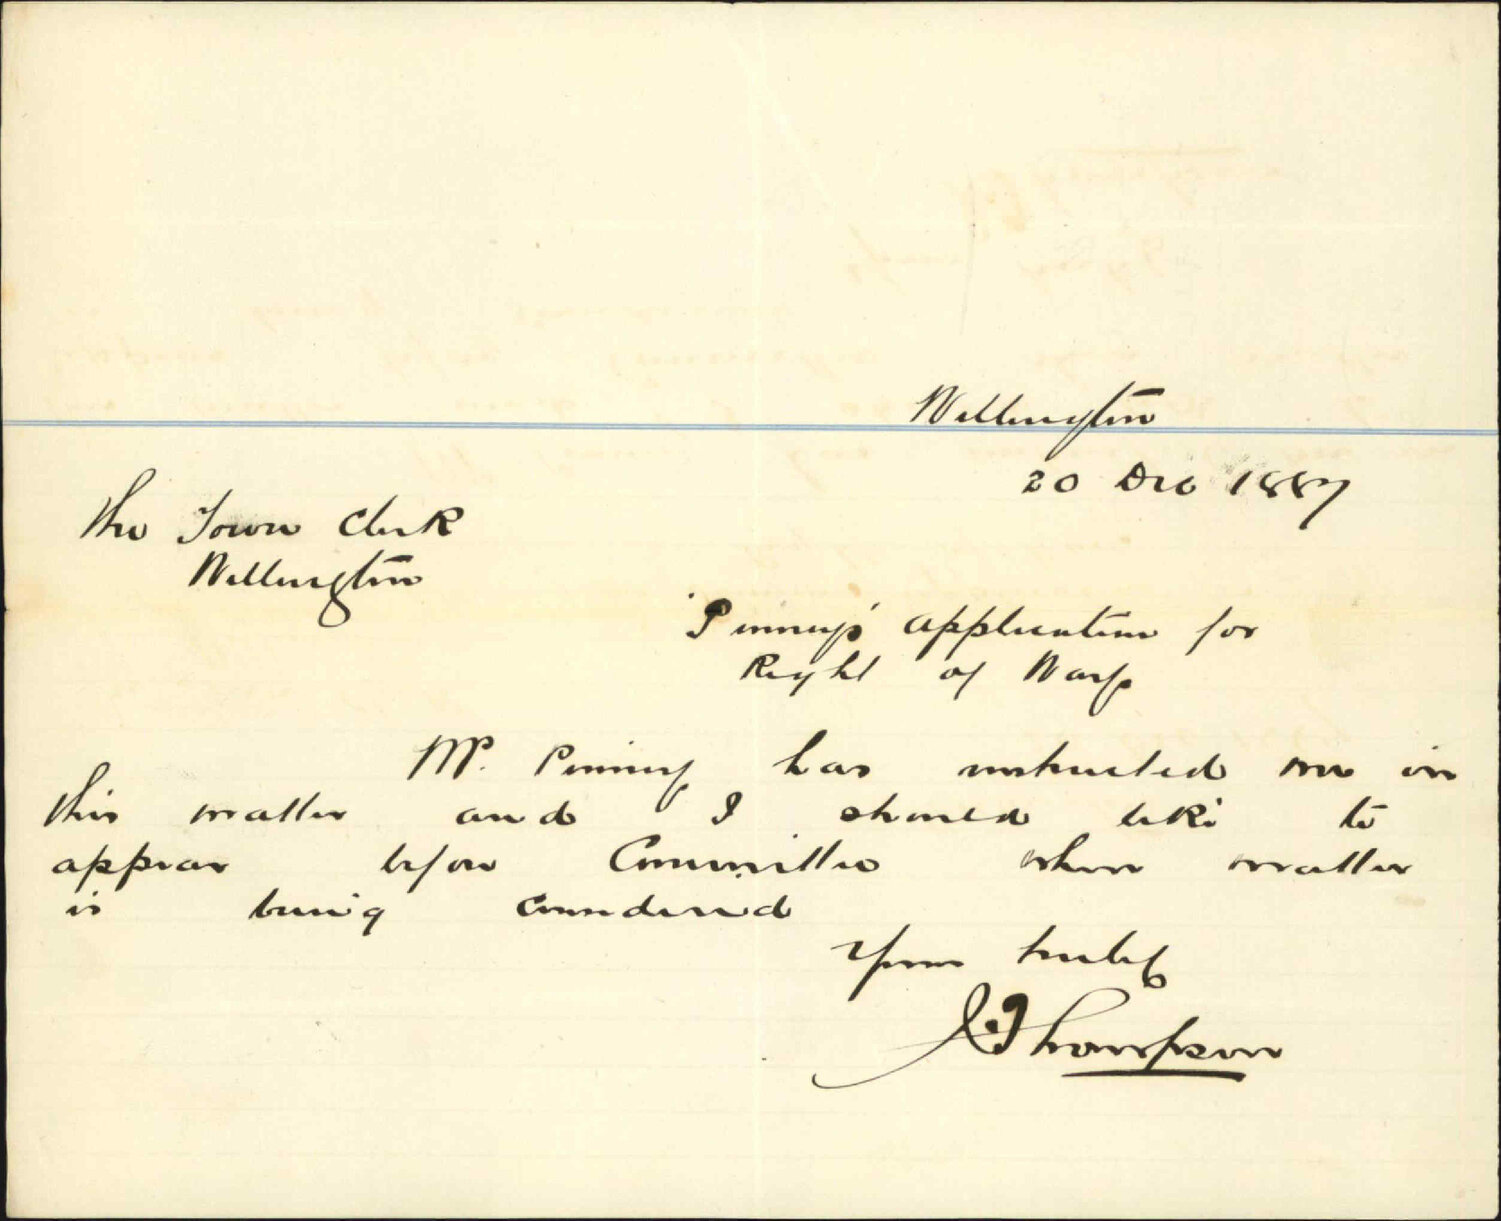 Wellington
20 Dec 1887
The Town Clerk
Wellington
'Pinny's' application for
Right of Way
Mr. Pinny has instructed me in
this matter and I should like to
appear before Committee when matter
is being considered
Yours truly
J Thompson